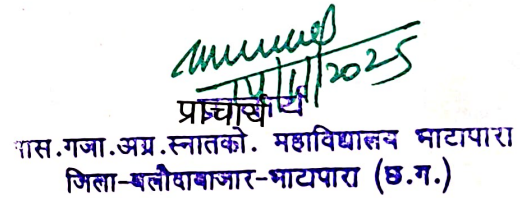 प्राचार्य
शास.गजा.अग्र.स्नातको. महाविद्यालय भाटापारा
जिला-बलौदाबाजार-भाटापारा (छ.ग.)